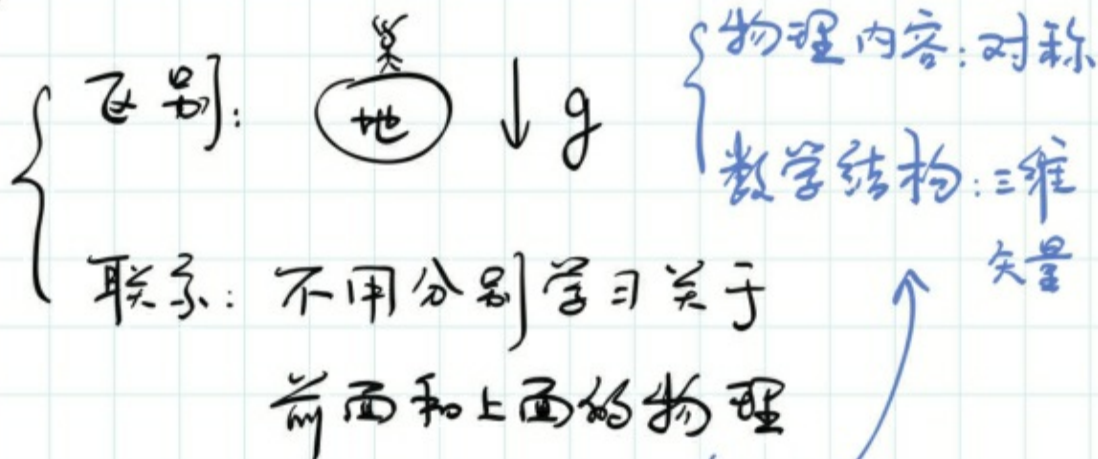 区别:
地
g
联系: 不用分别学习关于
前面和上面的物理
物理内容: 对称
数学结构: 三维
矢量